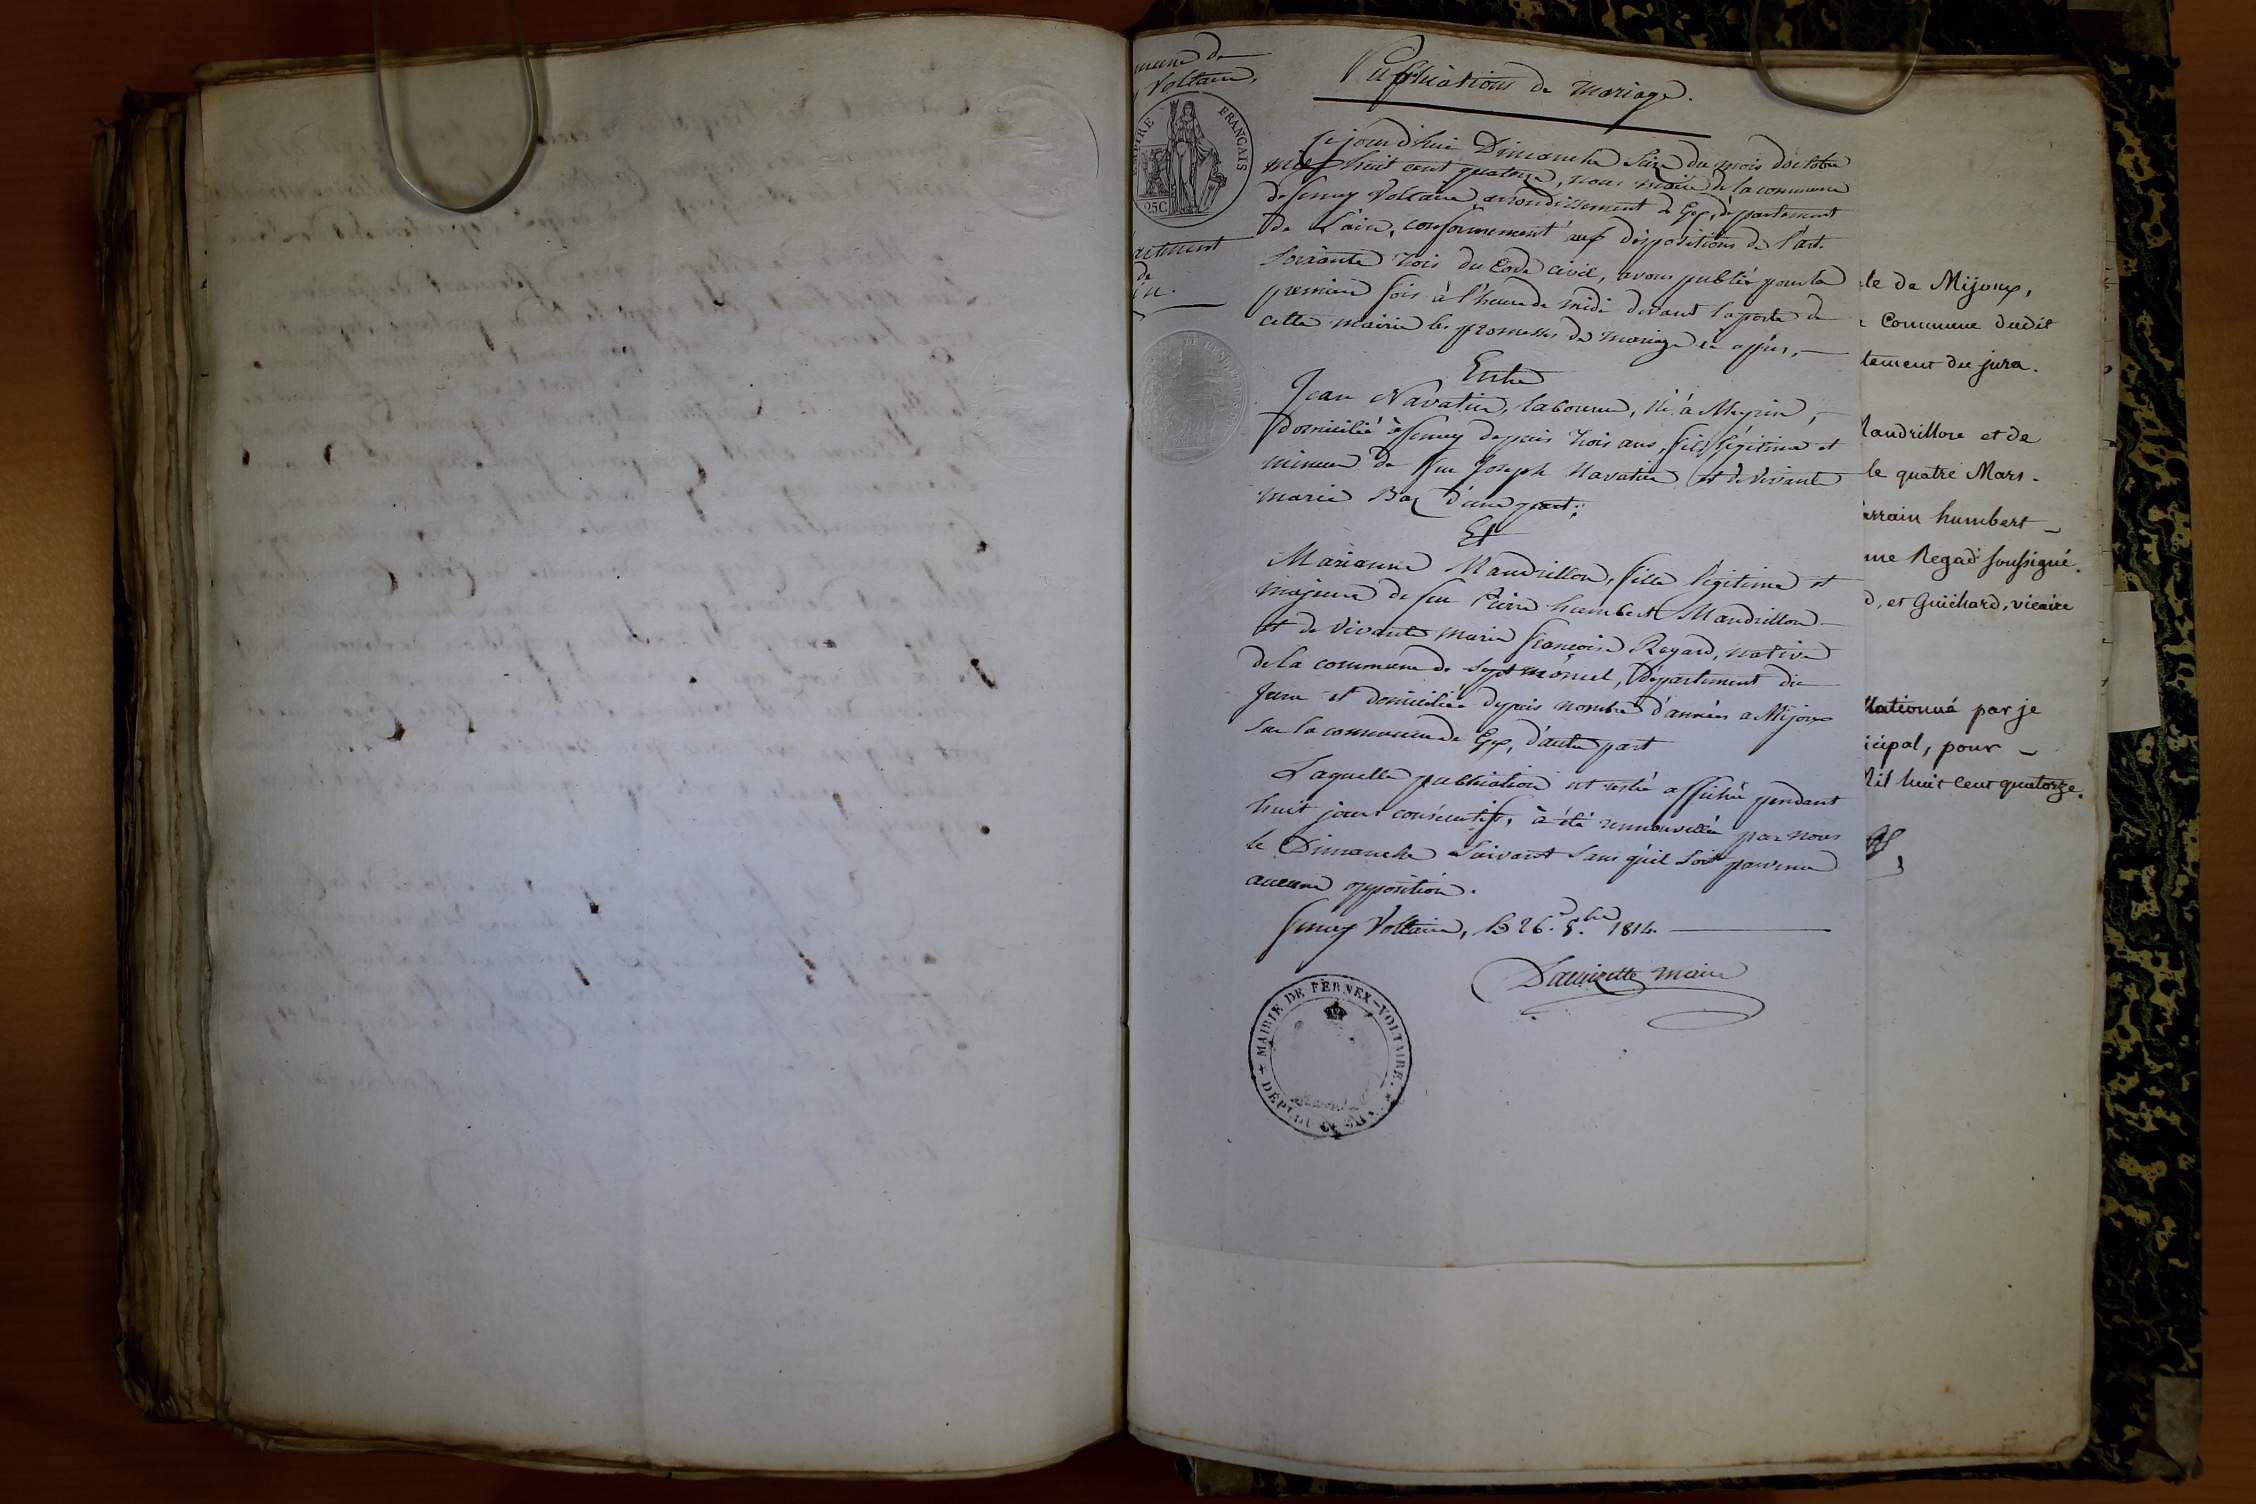 Voltaire,
EMPIRE FRANÇAIS
25C
de
Publications de mariage.
Cejourd'hui Dimanche Seize du mois d'octobre
mil huit cent quatorze, nous maire de la commune
de ferney Voltaire, arrondissement de Gex, département
de L'ain, conformement aux dispositions de l'art.
soixante trois du Code civil, avons publié pour la
premiere fois à l'heure de midi devant la porte de
cette mairie les promesses de mariage
Entre
Jean Navatier, laboureur, né à Meyrin,
domicilié à ferney depuis trois ans, fils légitime et
mineur de feu Joseph Navatier et de vivante
marie Baz d'une part;
Et
Marianne Mandrillon, fille légitime et
majeure de feu Pierre humbert Mandrillon
et de vivante marie françoise Regard, native
de la commune de Septmoncel, Département du
Jura et domiciliée depuis nombre d'années a Mijoux
sur la commune de Gex, d'autre part
Laquelle publication est restée affichée pendant
huit jours consécutifs, à été renouvellée par nous
le Dimanche suivant sans qu'il soit parvenu
aucune opposition.
ferney Voltaire, le 26. 8.bre 1814.
maire
MAIRIE DE FERNEX-VOLTAIRE.
de Mijoux,
Commune dudit
du jura.
et de
le quatre Mars.
humbert
Regad soussigné.
et Guichard, vicaire
par je
pour
huit cent quatorze.